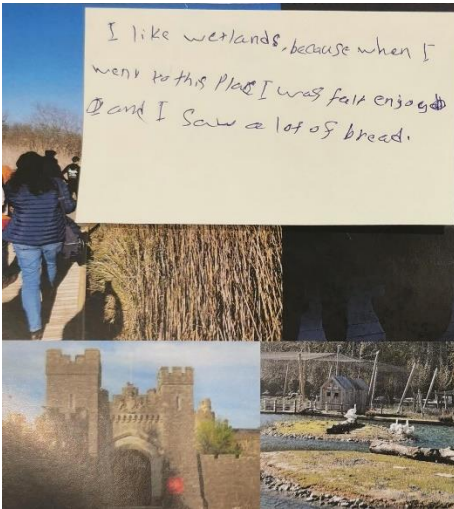 I like wetlands, because when I
went to this Place I was falt enjoyed
and I saw a lot of bread.